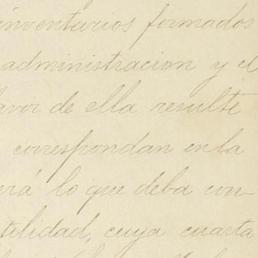 inventarios formados
administracion y el
favor de ella resulte
correspondan en la
rá lo que deba con-
tilidad, cuya cuarta